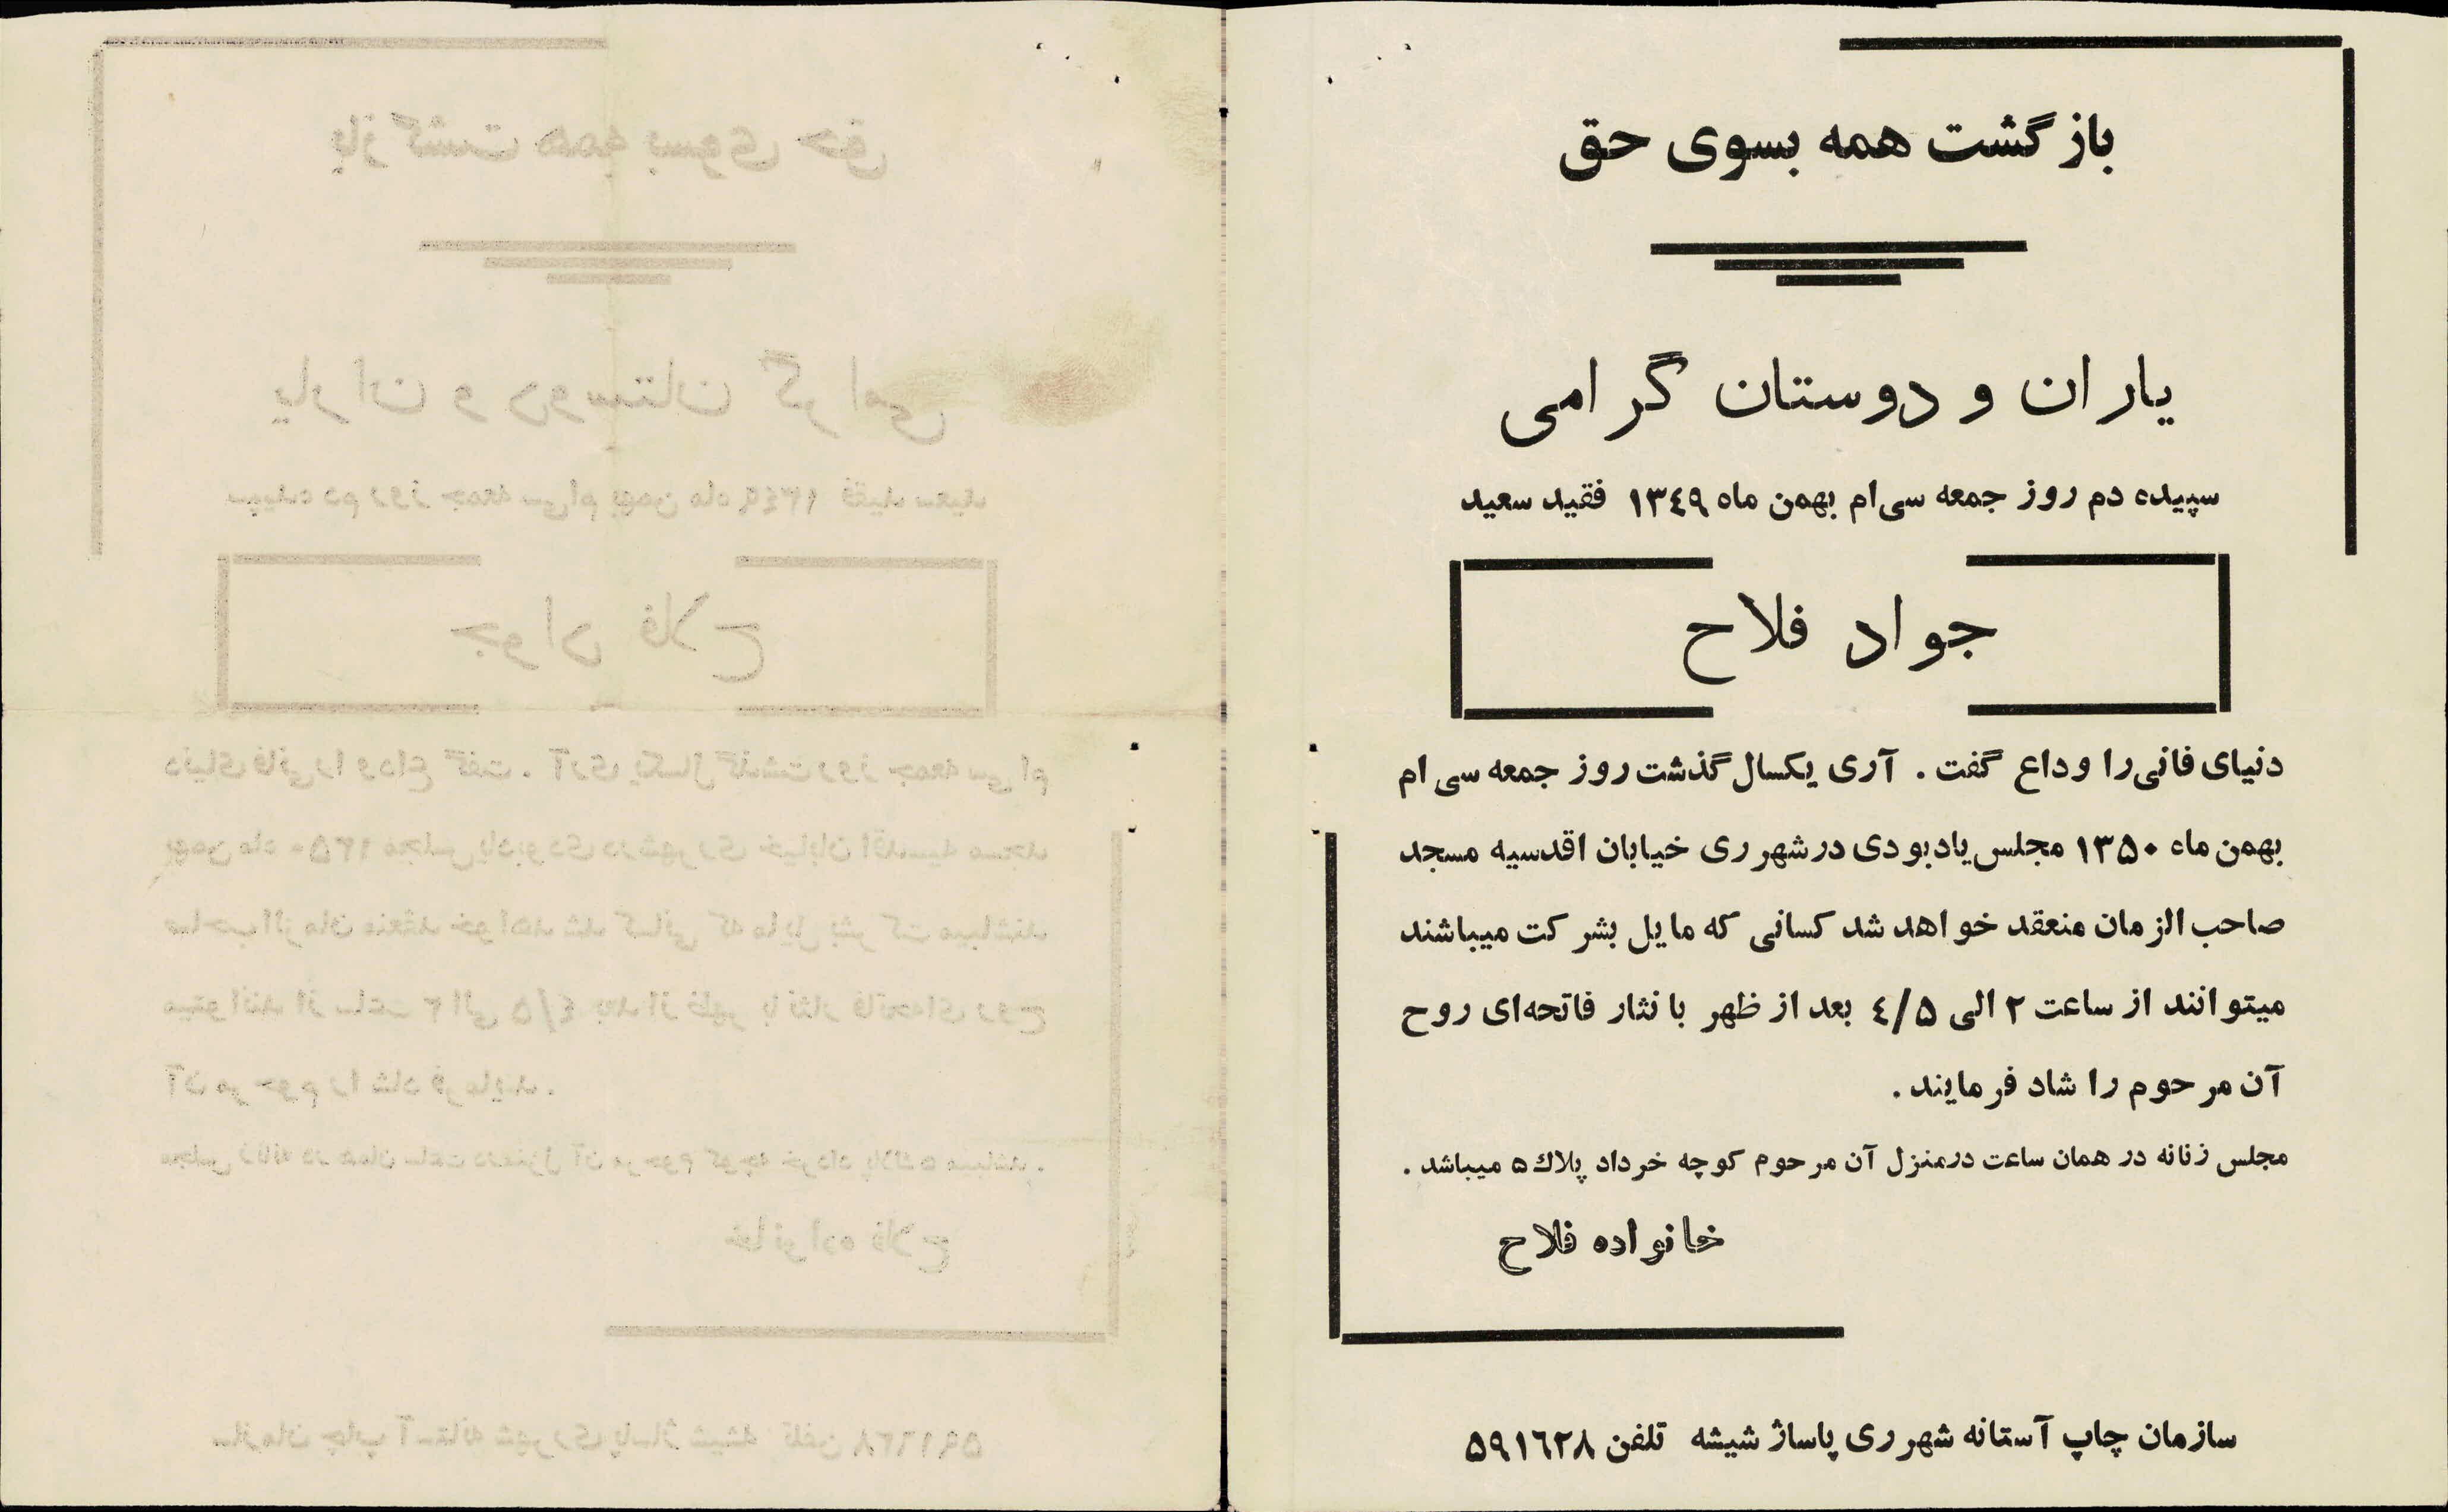 بازگشت همه بسوی حق
یاران و دوستان گرامی
سپیده دم روز جمعه سی‌ام بهمن ماه ۱۳٤۹ فقید سعید
جواد فلاح
دنیای فانی را وداع گفت . آری یکسال گذشت روز جمعه سی ام
بهمن ماه ۱۳۵۰ مجلس یادبودی در شهر ری خیابان اقدسیه مسجد
صاحب الزمان منعقد خواهد شد کسانی که مایل بشرکت میباشند
میتوانند از ساعت ۲ الی ٤/۵ بعد از ظهر با نثار فاتحه‌ای روح
آن مرحوم را شاد فرمایند .
مجلس زنانه در همان ساعت درمنزل آن مرحوم کوچه خرداد پلاك ۵ میباشد .
خانواده فلاح
سازمان چاپ آستانه شهر ری پاساژ شیشه تلفن ۵۹۱٦۲۸